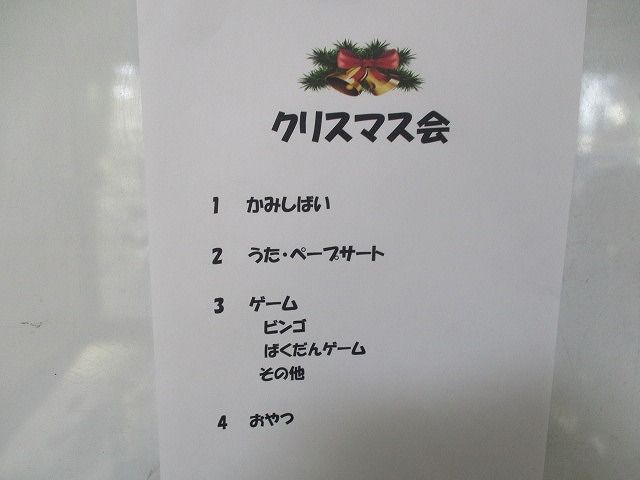 クリスマス会
1 かみしばい
2 うた・ペープサート
3 ゲーム
ビンゴ
ばくだんゲーム
その他
4 おやつ